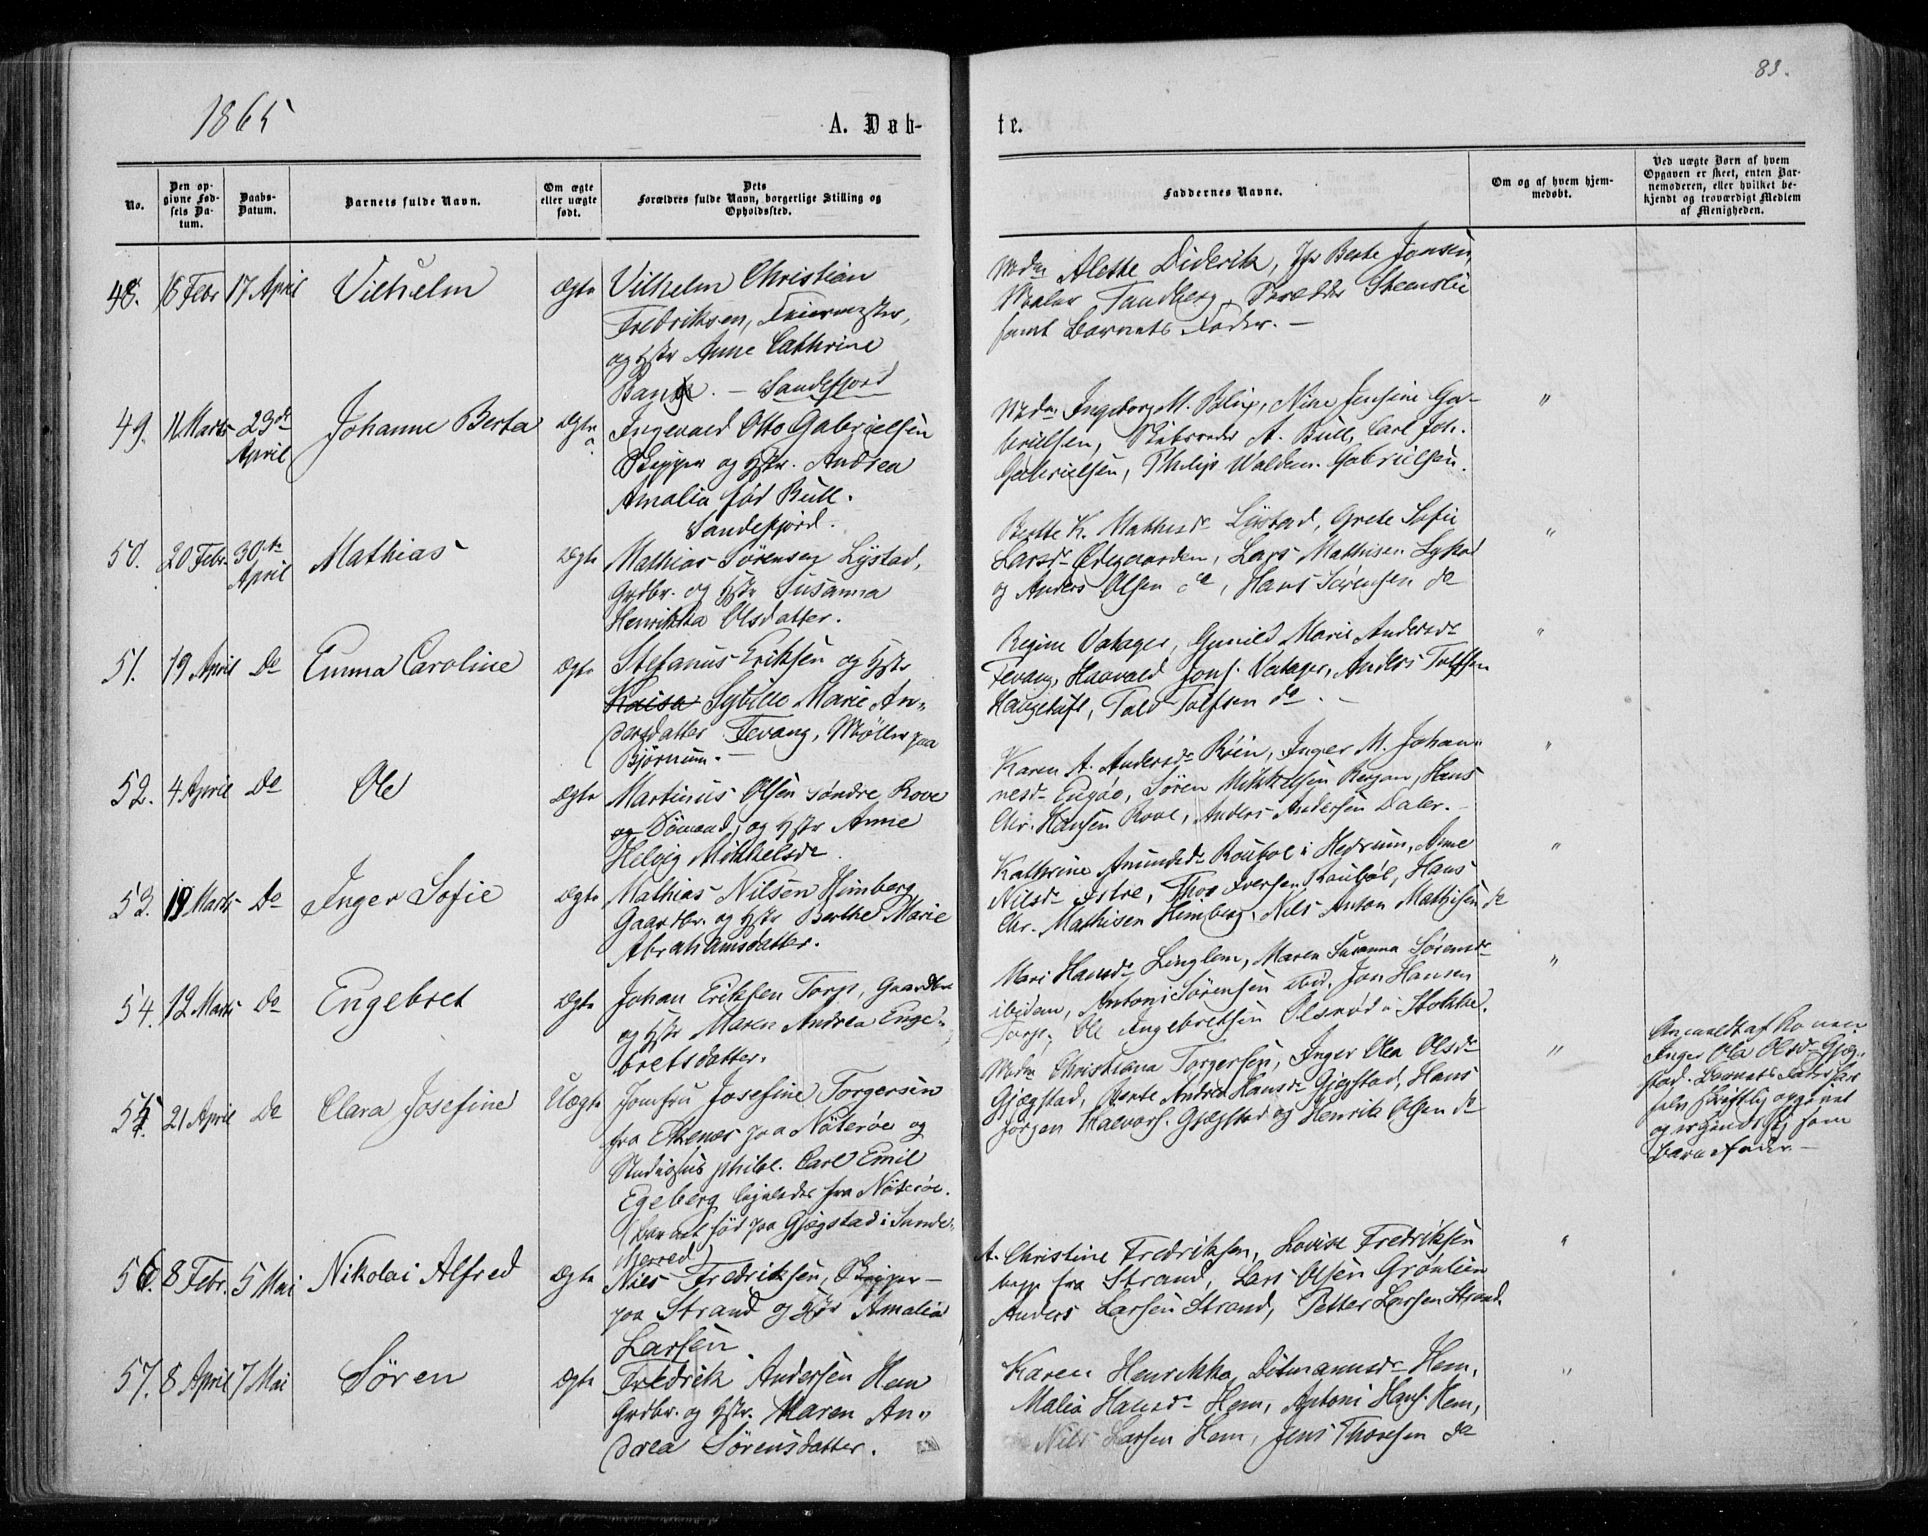 1865
A. Døb-
te.
83.
No.
Den op-
givne Fød-
sels Da-
tum.
Daabs-
Datum.
Barnets fulde Navn.
Om ægte
eller uægte
født.
Dets
Forældres fulde Navn, borgerlige Stilling og
Opholdssted.
Faddernes Navne.
Om og af hvem hjem-
medøbt.
Ved uægte Børn af hvem
Opgaven er skeet, enten Bar-
nemoderen, eller hvilket be-
kjendt og troværdigt Medlem
af Menigheden.
48. 16 Febr 17 April Vilhelm Ægte
Vilhelm Christian
Fredriksen, Feiermester,
og Hstr Anne Cathrine
Bang. — Sandefjord
Mdm Alette Diderik, Jfr Berte Jonsen,
Maler Tandberg, Steenslie
samt Barnets Fader. —
49. 11 Marts 23de April Johanne Berta Ægte
Ingevald Otto Gabrielsen
Skipper og Hstr. Andrea
Amalia fød Bull.
Sandefjord.
Mdm Ingeborg M. Nine Jensine Ga-
brielsen, Skibsreder A. Bull, Carl Joh.
Gabrielsen, Philip Waldem. Gabrielsen.
50. 20 Febr. 30te April Mathias Ægte
Mathias Sørensen Lystad,
Grdbr. og Hstr Susanna
Henrikka Olsdatter.
Berthe K. Mathisdr Lystad, Grete Sofie
Larsdr Ødegaarden, Lars Mathisen Lystad
og Anders Olsen do, Hans Sørensen do
51. 19 April Do Emma Caroline Ægte
Stefanus Eriksen og Hstr
Sybille Marie An-
dersdatter Fevang, Møller paa
Bjørnum. —
Regine Vatager, Gunild Marie Andersdr
Fevang, Haavald Jons. Vatager, Anders Tolfsen
Haugetuft, Tolv Tolfsen do. —
52. 4 April Do Ole Ægte
Martinus Olsen søndre Rove
og Sømand, og Hstr Anne
Helvig Mikkelsdr
Karen A. Andersdr Røin, Inger M. Johan-
nesdr Engøe, Søren Mikkelsen Bergan, Hans
Chr. Hansen Rove, Anders Andersen Daler. —
53. 19 Marts Do Inger Sofie Ægte
Mathias Nilsen Himberg
Gaardbr. og Hstr Berthe Marie
Abrahamsdatter.
Kathrine Amundsdr Roubøl i Hedrum, Anne
Nilsdr Istre, Thor Iversen Roubøl, Hans
Chr. Mathisen Himberg, Nils Anton Mathisen do
54. 12 Marts Do Engebret Ægte
Johan Eriksen Torp, Gaardbr.
og Hstr Maren Andrea Enge-
bretsdatter.
Mari Hansdr Linglem, Maren Susanna Sørensdr
ibidem, Antoni Sørensen ibid. Jon Hansen
Torp, Ole Ingebretsen Olsrød i Stokke.
55. 21 April Do Clara Josefine Uægte
Jomfru Josefine Torgersen
fra Ekenæs paa Nøterøe og
Studiosus philol. Carl Emil
Egeberg ligeledes fra Nøterøe.
(Barnet fød paa Gjøgstad i Sande-
herred)
Mdm Christiana Torgersen, Inger Olea Olsdr
Gjøgstad, Bente Andrea Hansdr Gjøgstad, Hans
Jørgen Halvors. Gjøgstad og Henrik Olsen do
Anmeldt af Konen
Inger Olea Olsdr Gjøg-
stad. Barnets Fader har
selv skriftlig opgivet
og erkjendt sig som
Barnefader. —
56. 8 Febr. 5 Mai Nikolai Alfred Ægte
Niels Fredriksen, Skipper —
paa Strand og Hstr Amalia
Larsen.
A. Christine Fredriksen, Lovise Fredriksen
begge fra Strand, Lars Olsen Grønlien
Anders Larsen Strand, Petter Larsen Strand.
57. 8 April 7 Mai Søren Ægte
Fredrik Andersen Hem
Grdbr. og Hstr. Maren An-
drea Sørensdatter.
Karen Henrikka Ditmannsdr Hem,
Malia Hansdr Hem, Antoni Hans. Hem,
Nils Larsen Hem, Jens Thoresen do